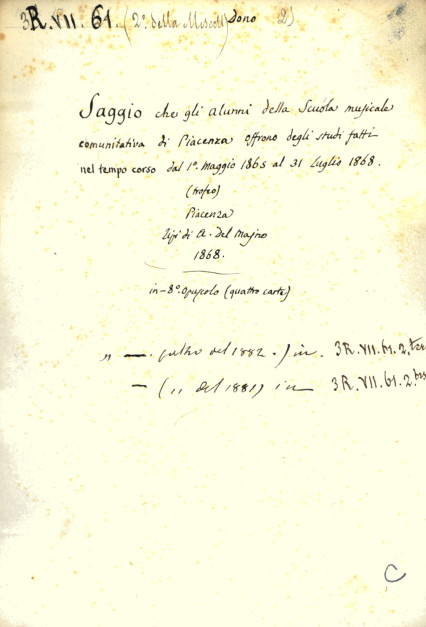 3R.VII.61. (2º. della Miscell) Dono 2)
Saggio che gli alunni della Scuola musicale
comunitativa di Piacenza offrono degli studi fatti
nel tempo corso dal 1º. Maggio 1865 al 31 Luglio 1868.
(trofeo)
Piacenza
Tipi di A. Del Majno
1868.
in-8º. opuscolo (quattro carte)
" — . (altro del 1882.) in. 3R.VII.61.2.ter
— (,, del 1881) in 3R.VII.61.2.bis
C